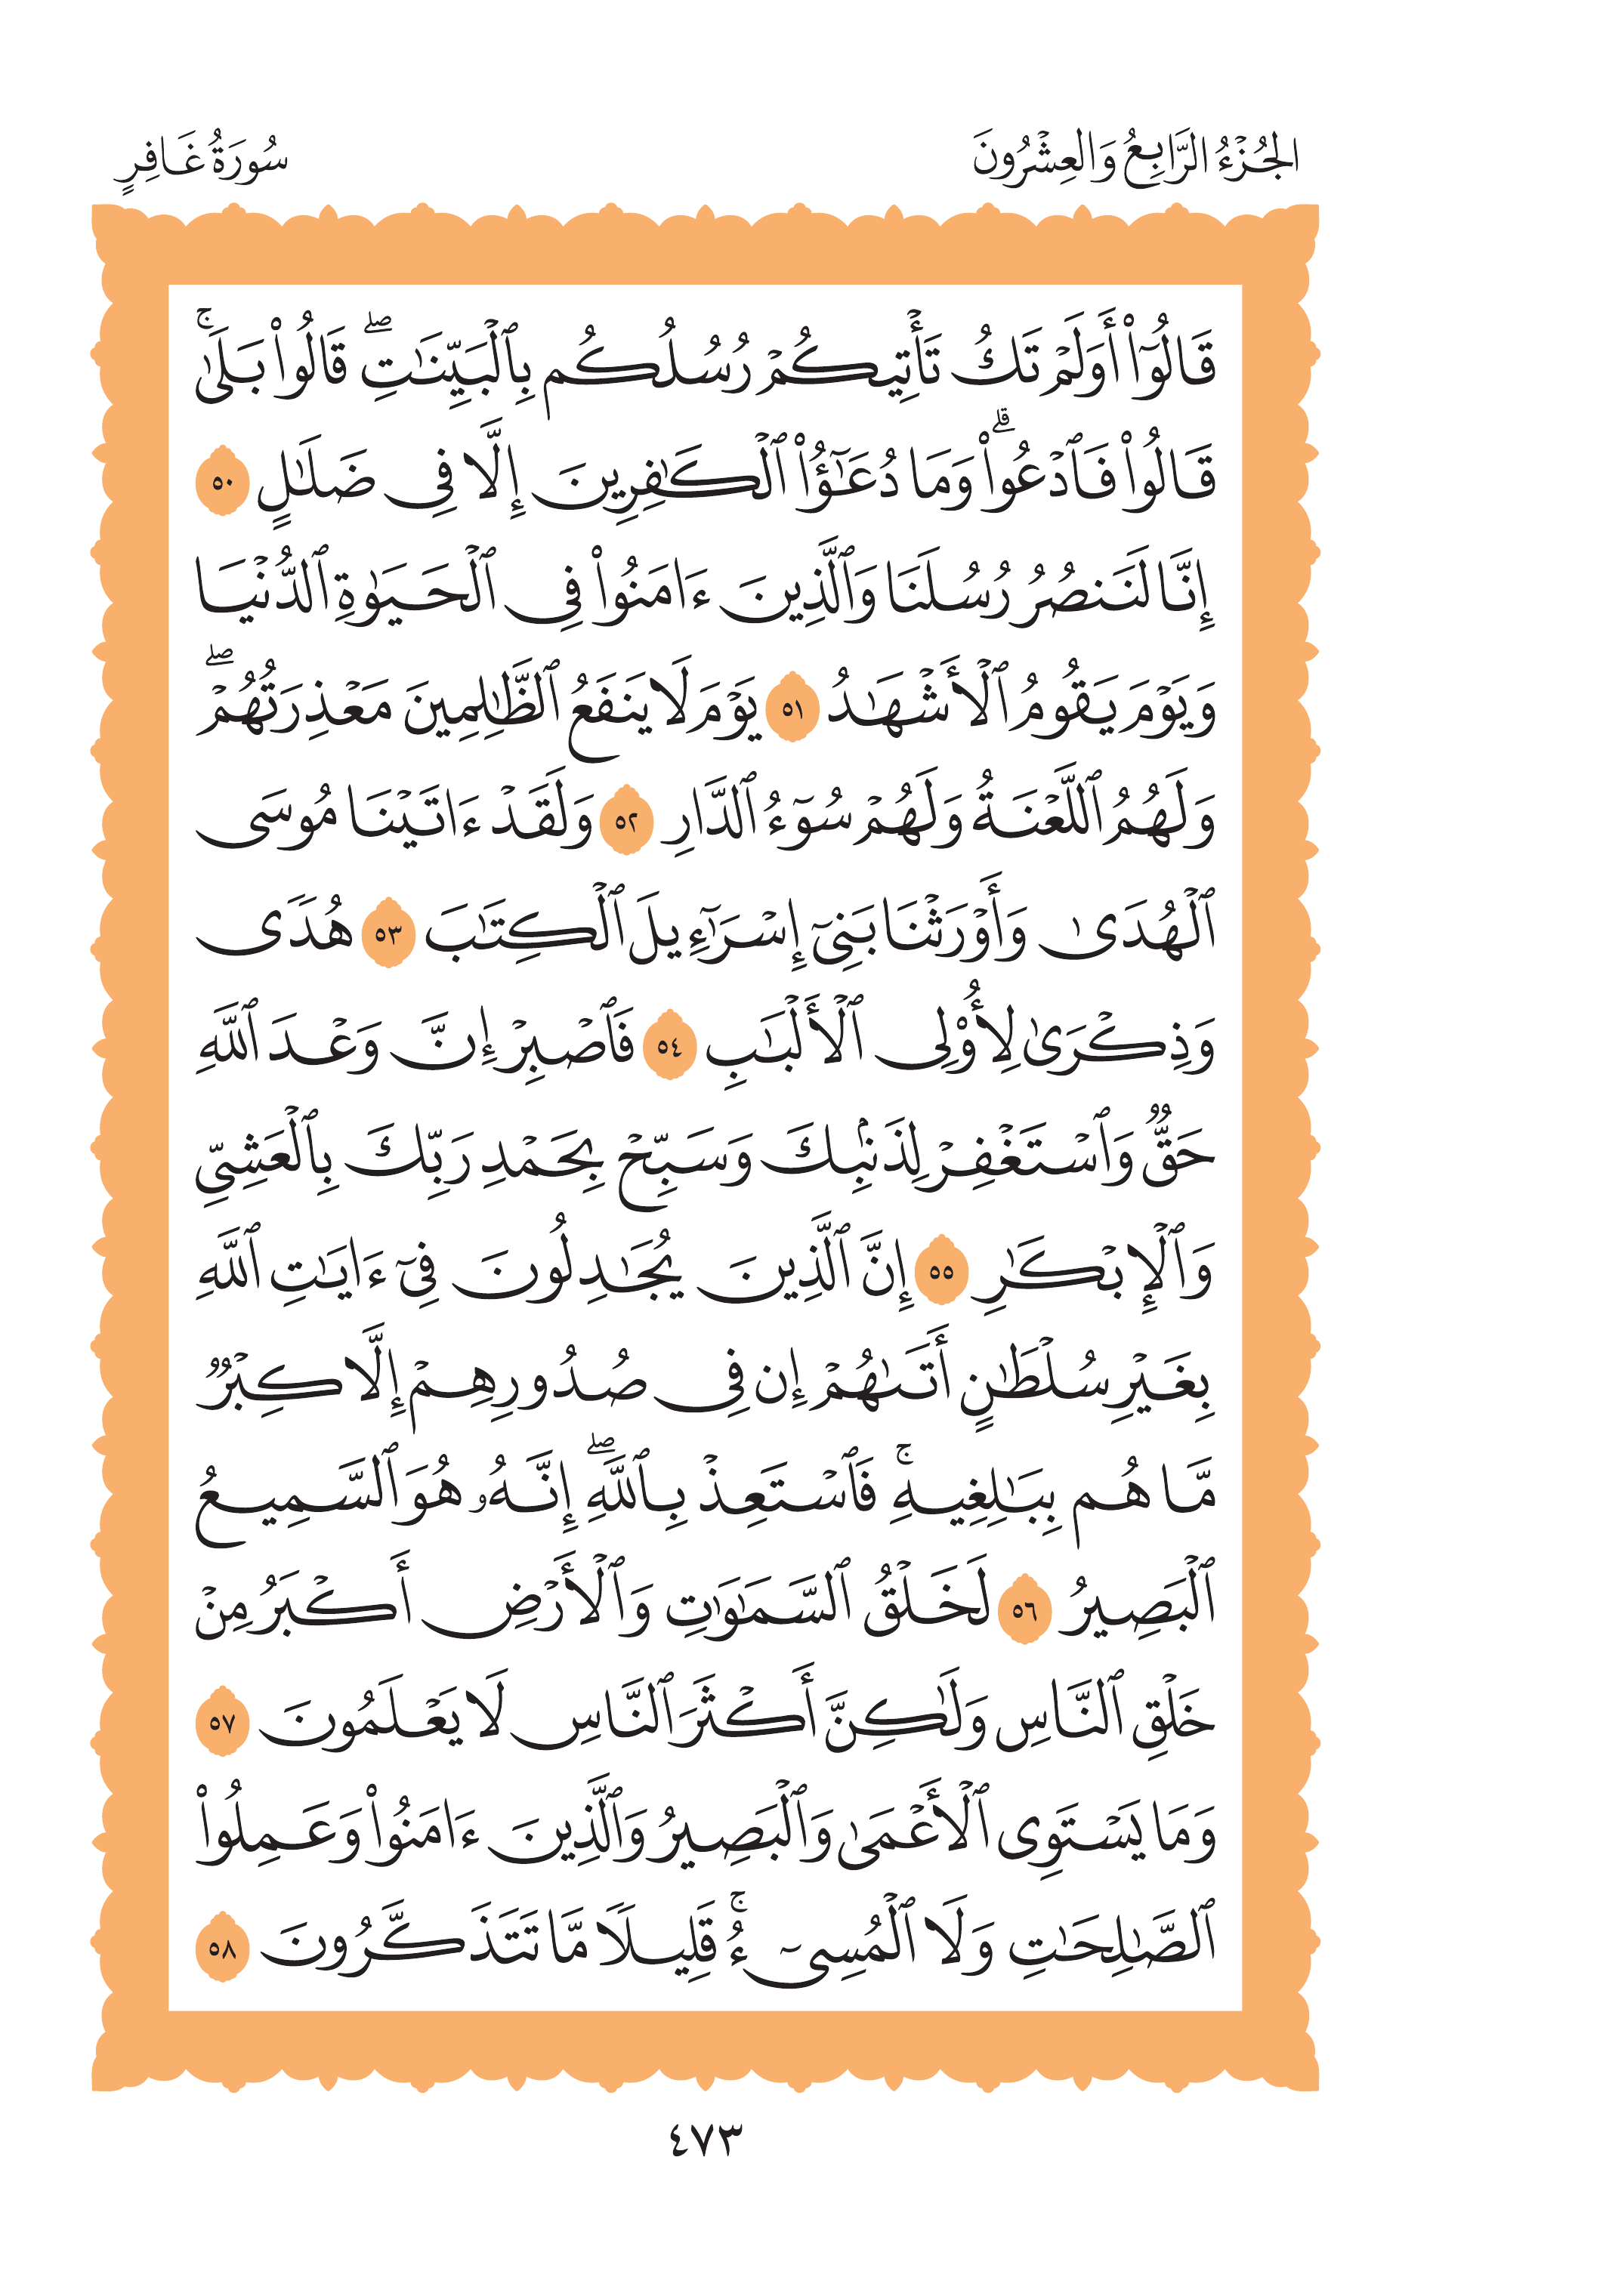 الجُزْءُ الرَّابِعُ وَالعِشْرُونَ
سُورَةُ غَافِرٍ
قَالُوٓاْ أَوَلَمْ تَكُ تَأْتِيكُمْ رُسُلُكُم بِٱلْبَيِّنَـٰتِۖ قَالُواْ بَلَىٰۚ
قَالُواْ فَٱدْعُواْۗ وَمَا دُعَـٰٓؤُاْ ٱلْكَـٰفِرِينَ إِلَّا فِى ضَلَـٰلٍ ٥٠
إِنَّا لَنَنصُرُ رُسُلَنَا وَٱلَّذِينَ ءَامَنُواْ فِى ٱلْحَيَوٰةِ ٱلدُّنْيَا
وَيَوْمَ يَقُومُ ٱلْأَشْهَـٰدُ ٥١ يَوْمَ لَا يَنفَعُ ٱلظَّـٰلِمِينَ مَعْذِرَتُهُمْۖ
وَلَهُمُ ٱللَّعْنَةُ وَلَهُمْ سُوٓءُ ٱلدَّارِ ٥٢ وَلَقَدْ ءَاتَيْنَا مُوسَى
ٱلْهُدَىٰ وَأَوْرَثْنَا بَنِىٓ إِسْرَـٰٓءِيلَ ٱلْكِتَـٰبَ ٥٣ هُدًى
وَذِكْرَىٰ لِأُوْلِى ٱلْأَلْبَـٰبِ ٥٤ فَٱصْبِرْ إِنَّ وَعْدَ ٱللَّهِ
حَقٌّ وَٱسْتَغْفِرْ لِذَنۢبِكَ وَسَبِّحْ بِحَمْدِ رَبِّكَ بِٱلْعَشِىِّ
وَٱلْإِبْكَـٰرِ ٥٥ إِنَّ ٱلَّذِينَ يُجَـٰدِلُونَ فِىٓ ءَايَـٰتِ ٱللَّهِ
بِغَيْرِ سُلْطَـٰنٍ أَتَىٰهُمْ إِن فِى صُدُورِهِمْ إِلَّا كِبْرٌ
مَّا هُم بِبَـٰلِغِيهِۚ فَٱسْتَعِذْ بِٱللَّهِۖ إِنَّهُۥ هُوَ ٱلسَّمِيعُ
ٱلْبَصِيرُ ٥٦ لَخَلْقُ ٱلسَّمَـٰوَٰتِ وَٱلْأَرْضِ أَكْبَرُ مِنْ
خَلْقِ ٱلنَّاسِ وَلَـٰكِنَّ أَكْثَرَ ٱلنَّاسِ لَا يَعْلَمُونَ ٥٧
وَمَا يَسْتَوِى ٱلْأَعْمَىٰ وَٱلْبَصِيرُ وَٱلَّذِينَ ءَامَنُواْ وَعَمِلُواْ
ٱلصَّـٰلِحَـٰتِ وَلَا ٱلْمُسِىٓءُۚ قَلِيلًا مَّا تَتَذَكَّرُونَ ٥٨
٤٧٣